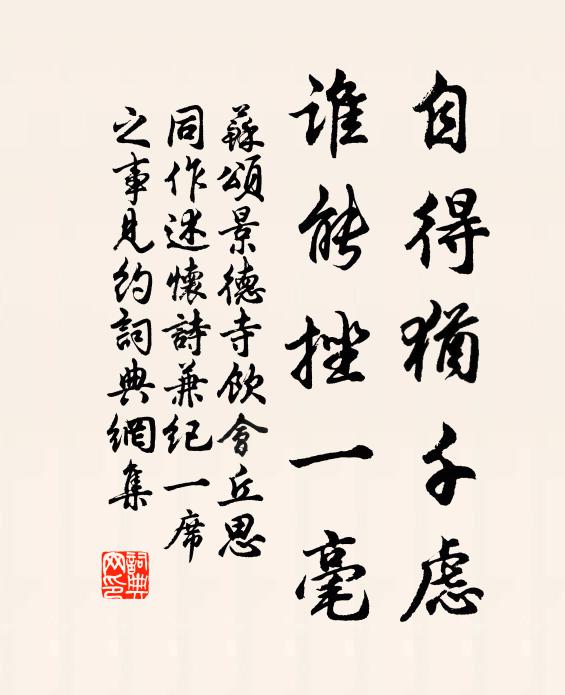 自得猶千慮
誰能挫一毫
蘇頌景德寺飲會丘思
同作述懷詩兼紀一席
之事見約詞典網集
詞典網印